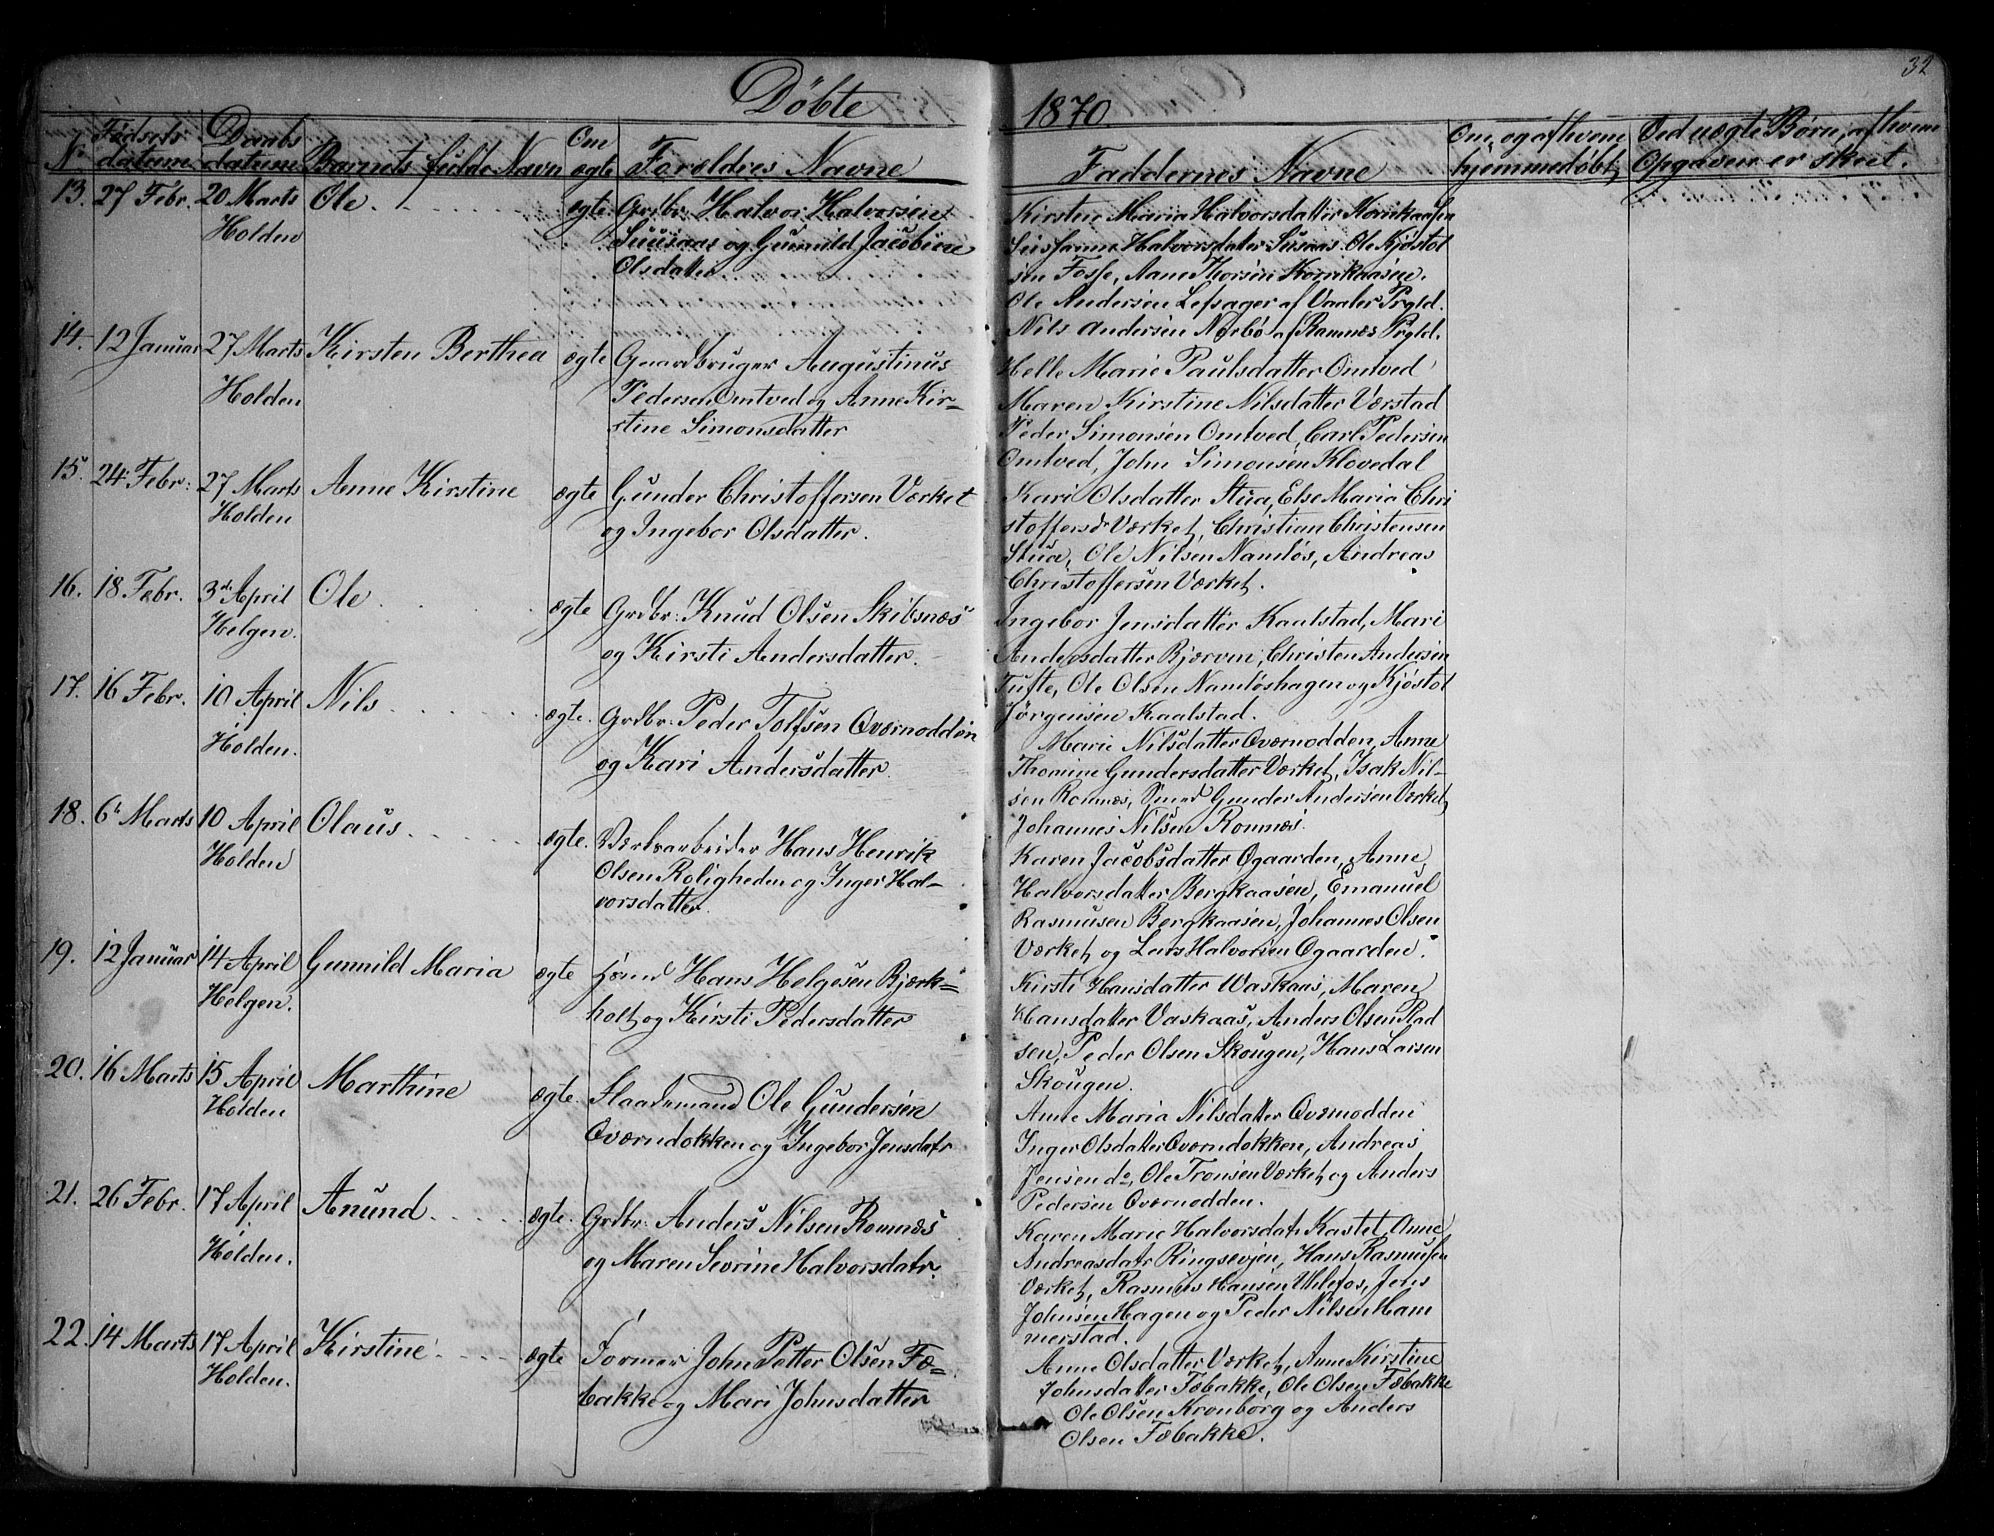 Döbte
1870.
32
No
Födsels datum
Daabs datum
Barnets fulde Navn
Om ægte
Forældres Navne
Faddernes Navne
Om, og af hvem hjemmedöbt
Ved uægte Børn, af hvem Opgaven er skeet.
13. 27 Febr. 20 Marts Ole. ægte Grdbr. Halvor Halvorsen
Holden Suusaas og Gunnild Jacobine
Olsdatter
Kirsten Maria Halvorsdatter Kornkaasen
Susanne Halvorsdatter Susaas. Ole Kjöstol
sen Fosse, Aane Thorsen Kornkaasen.
Ole Andersen Lefsager af Vaaler Prgld.
Nils Andersen Norbö af Ramnæs Prgld.
14. 12 Januar 27 Marts Kirsten Berthea ægte Gaardbruger Augustinus
Holden Pedersen Omtved og Anne Kir=
stine Simonsdatter
Helle Marie Paulsdatter Omtved
Maren Kirstine Nilsdatter Værstad
Peder Simonsen Omtved, Carl Pedersen
Omtved, John Simonsen Klovedal
15. 24 Febr: 27 Marts Anne Kirstine ægte Gunder Christoffersen Værket
Holden og Ingebor Olsdatter.
Kari Olsdatter Stua, Else Maria Chri
stoffersdr Værket, Christian Christensen
Stua, Ole Nilsen Namløs, Andreas
Christoffersen Værket.
16. 18 Febr. 3de April Ole ægte Grdbr: Knud Olsen Skibsnæs
Helgen. og Kirsti Andersdatter.
Ingebor Jensdatter Kaalstad, Mari
Andersdatter Bjærven, Christen Andersen
Tufte, Ole Olsen Namløshagen og Kjöstol
Jörgensen Kaalstad.
17. 16 Febr. 10 April Nils ægte. Grdbr: Peder Tolfsen Oværnodden
Holden. og Kari Andersdatter.
Marie Nilsdatter Oværnodden, Anne
Thomine Gundersdatter Værket, Isak Nil=
sen Romnæs, Smed Gunder Andersen Værket
Johannes Nilsen Romnæs.
18. 6te Marts 10 April Olaus ægte. Værksarbeider Hans Henrik
Holden Olsen Roligheden og Inger Hal=
vorsdatter.
Karen Jacobsdatter Ogaarden, Anne
Halvorsdatter Bergkaasen, Emanuel
Rasmusen Bergkaasen, Johannes Olsen
Værket og Lars Halvorsen Ogaarden.
19. 12 Januar 14 April Gunnild Maria ægte Hans Helgesen Bjærk=
Helgen. holt og Kirsti Pedersdatter
Kirsti Hansdatter Waskaas, Maren
Hansdatter Vaskaas, Anders Olsen Rad
sen, Peder Olsen Skougen, Hans Larsen
Skougen.
20. 16 Marts 15 April Marthine ægte. Flaademand Ole Gundersen
Holden Oværndokken og Ingebor Jensdatr
Anne Maria Nilsdatter Oværnodden
Inger Olsdatter Oværndokken, Andreas
Jensen do, Ole Tronsen Værket og Anders
Pedersen Oværnodden.
21. 26 Febr. 17 April Anund ægte. Grdbr: Anders Nilsen Romnæs
Holden. og Maren Sevrine Halvorsdatr.
Karen Marie Halvorsdatr Kastet, Anne
Andreasdatr Ringsevjen, Hans Rasmusen
Værket, Rasmus Hansen Ulefos, Jens
Johnsen Hagen og Peder Nilsen Ham
merstad.
22. 14 Marts 17 April Kirstine ægte Former John Petter Olsen Fæ=
Holden. bakke og Mari Johnsdatter
Anne Olsdatter Værket, Anne Kirstine
Johnsdatter Fæbakke, Ole Olsen Fæbakke
Ole Olsen Kronborg og Anders
Olsen Fæbakke.